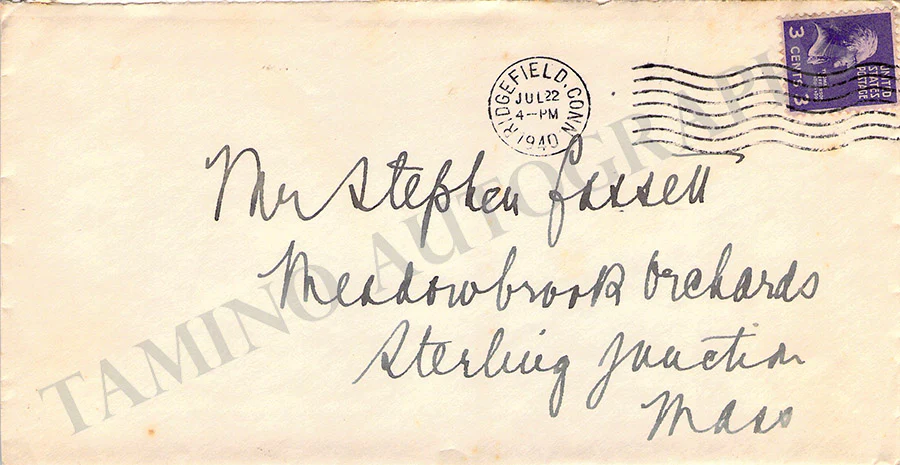 RIDGEFIELD, CONN.
JUL 22
4-PM
1940
3 CENTS 3
UNITED
STATES
POSTAGE
Mr Stephen Fassett
Meadowbrook Orchards
Sterling Junction
Mass
TAMINO AUTOGRAPH